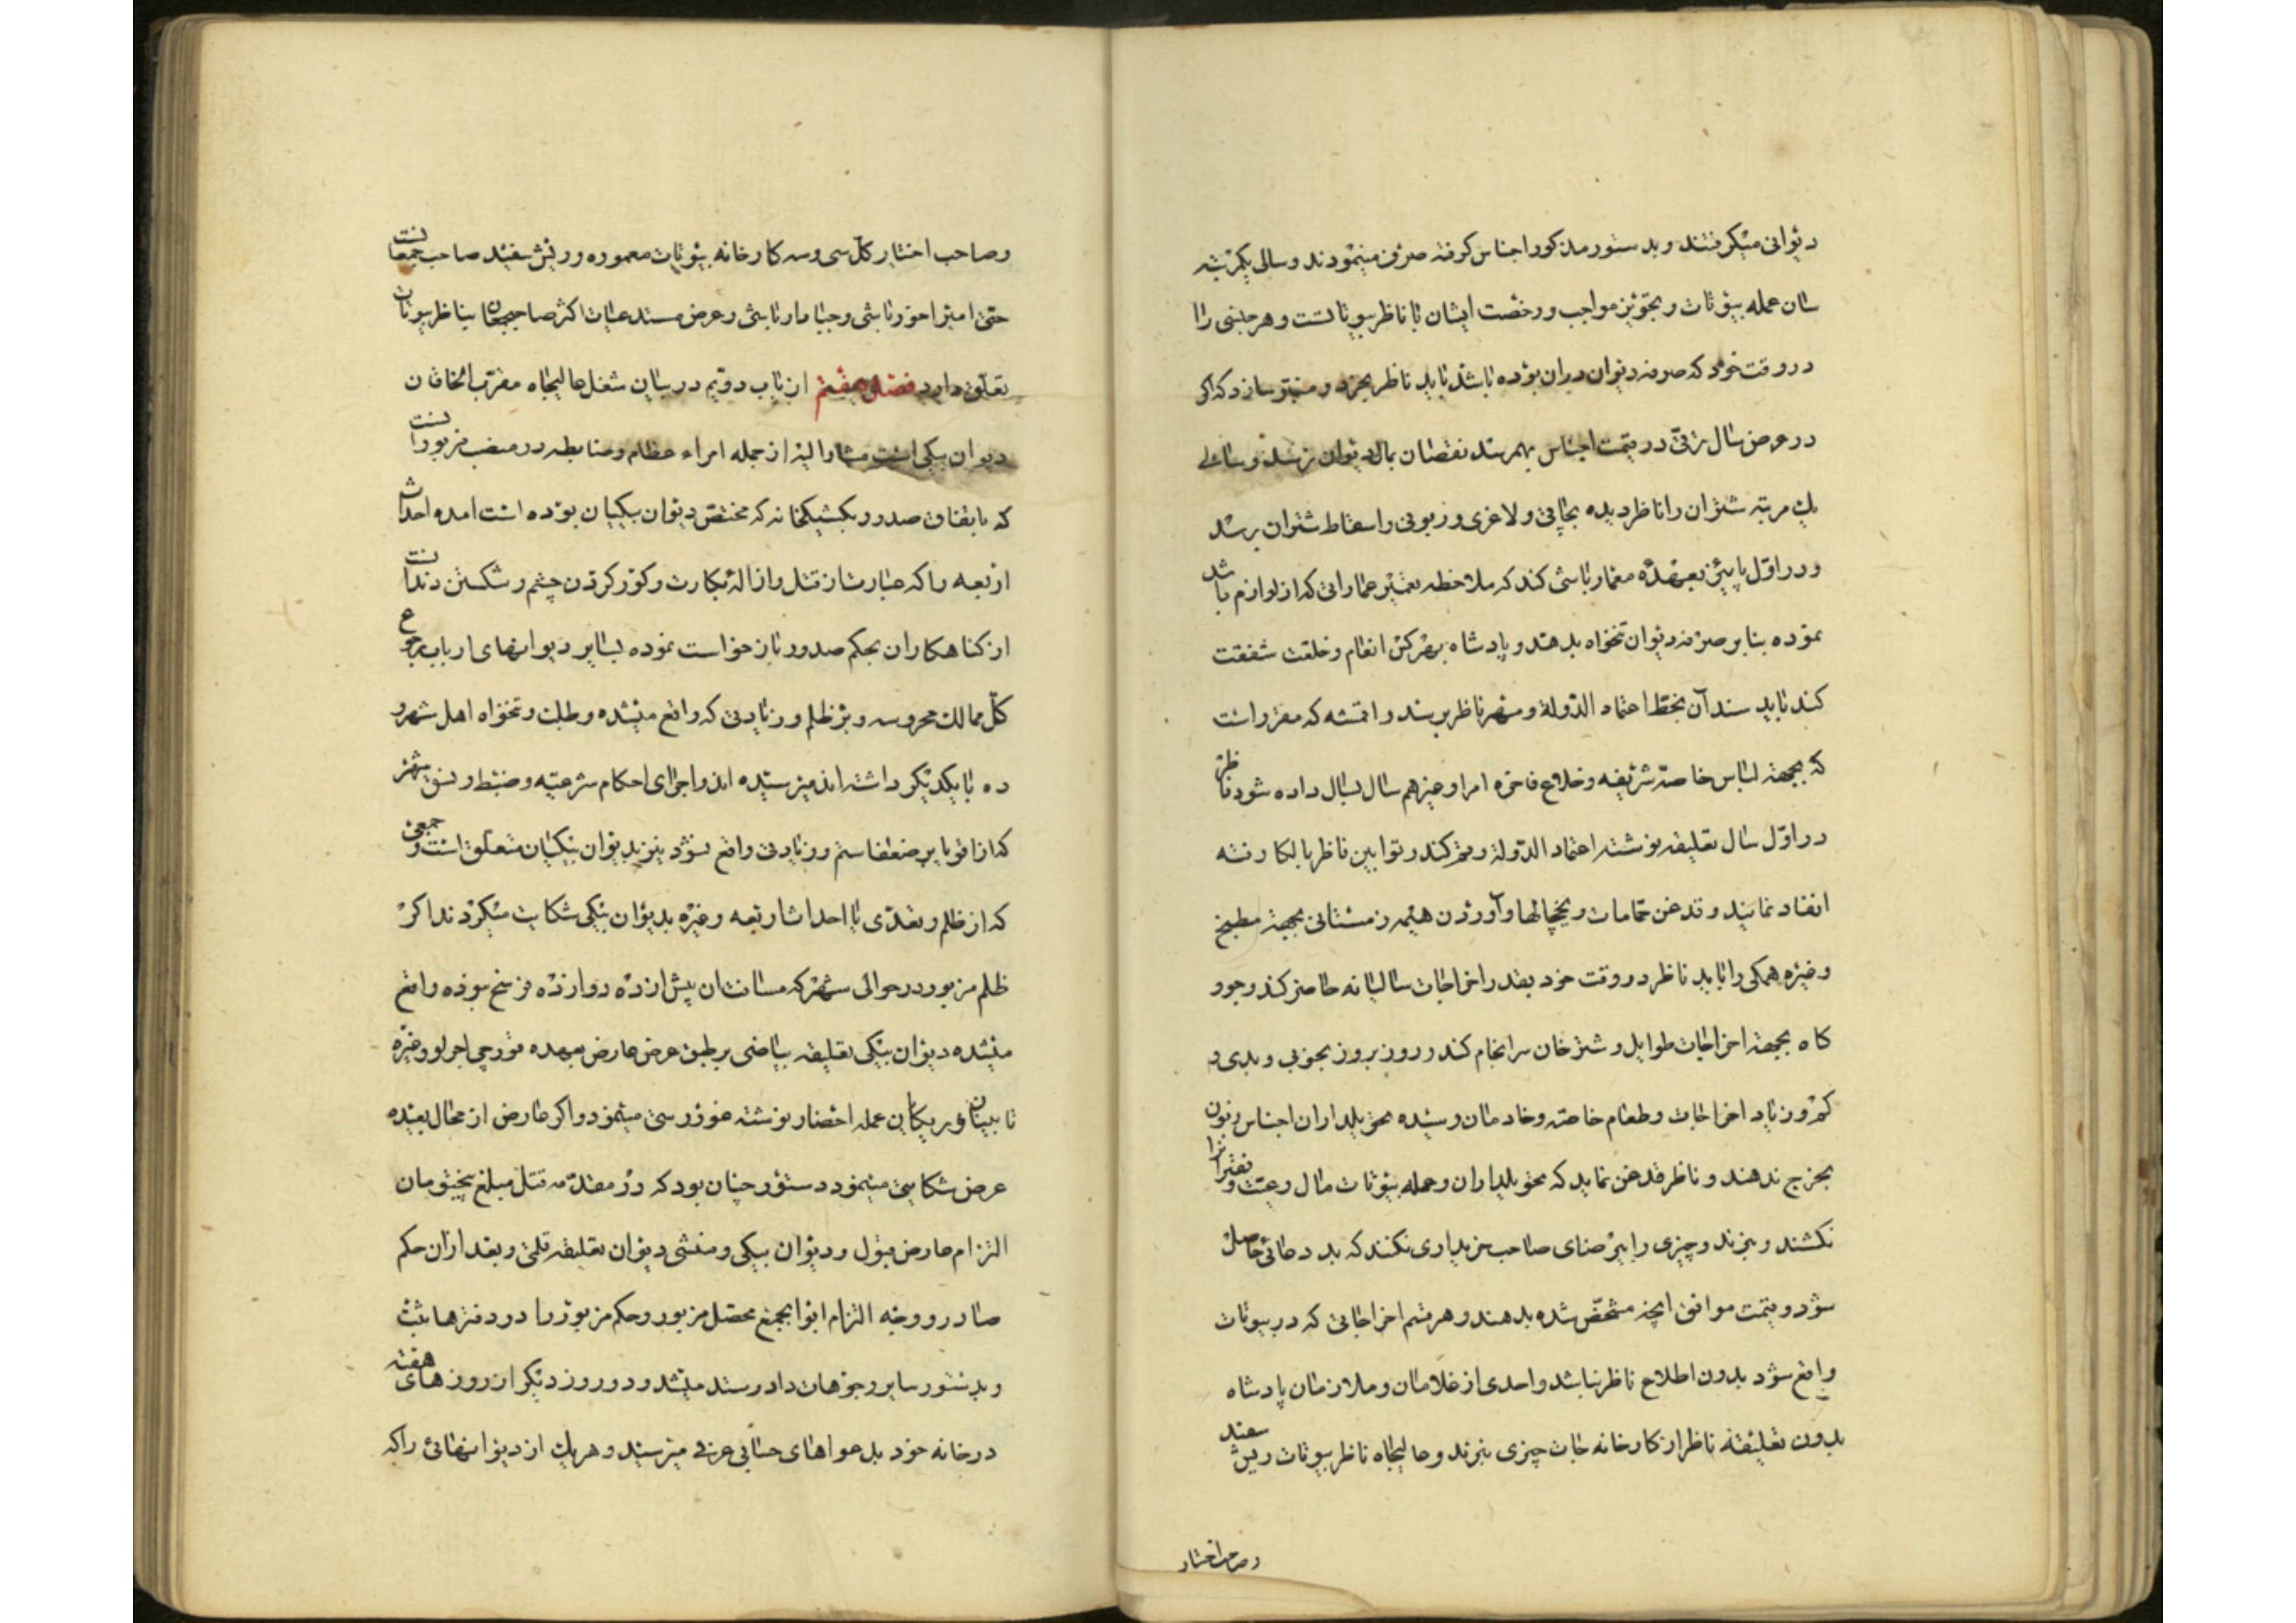 دیوانی میگرفتند و بدستور مذکور اجناس گرفته صرف مینمودند و سالی یکمرتبه
سان عمله بیوتات و تجویز مواجب و رخصت ایشان با ناظر بیوتاتست و هر جنسی را
در وقت خود که صرفه دیوان در ان بوده باشد باید ناظر بخرد و
در عرض سال ترقی در قیمت اجناس بهمرسد نقصان بمال دیوان نرسد و سالی
یک مرتبه شتران را ناظر دیده بچاقی و لاغری و زبونی و اسقاط شتران برسد
و در اول پاییز بعهده معمار باشی کند که ملاحظه تعمیر عماراتی که از لوازم باشد
نموده بنا بر صرفه دیوان تنخواه بدهند و پادشاه بهر کس انعام و خلعت شفقت
کند باید سند آن بخط اعتماد الدوله و مهر ناظر برسد و اقمشه که مقرر است
که بجهة لباس خاصه شریفه و خلاع فاخره امرا و غیرهم سال بسال داده شود ناظر
در اول سال تعلیقه نوشته اعتماد الدوله رقم کند و توابین ناظر بالکا رفته
انفاد نمایند و قدغن حمامات و یخچالها و آوردن هیمه زمستانی بجهة مطبخ
و غیره همگی را باید ناظر در وقت خود بقدر اخراجات سالیانه حاضر کند و جو و
کاه بجهة اخراجات طوایل و شترخان سرانجام کند و روز بروز بخوبی و بدی و
کم و زیاد اخراجات و طعام خاصه و خادمان رسیده تحویلداران اجناس زبون
بخرج ندهند و ناظر قدغن نماید که تحویلداران و عمله بیوتات مال رعیت و فقرا را
نکشند و نبرند و چیزی را بیرضای صاحب خریداری نکنند که بد دعائی حاصل
شود و قیمت موافق انچه مشخص شده بدهند و هر قسم اخراجاتی که در بیوتات
واقع شود بدون اطلاع ناظر نباشد و احدی از غلامان و ملازمان پادشاه
بدون تعلیقه ناظر از کارخانه جات چیزی نبرند و عالیجاه ناظر بیوتات ریش سفید
و صاحب اختیار
و صاحب اختیار کل سی و سه کارخانه بیوتات معموره و ریش سفید صاحب جمعانست
حتی امیراخورباشی و جبادارباشی و عرض مستدعیات اکثر صاحبجمعان بناظر بیوتات
تعلق دارد فصل هفتم از باب دویم در بیان شغل عالیجاه مقرب الخاقان
دیوان بیکی است مشار الیه از جمله امراء عظام و ضابطه در منصب مزبور آنست
که باتفاق صدور بکشیکخانه که مختص دیوان بیکیان بوده است امده احداث
اربعه را که عبارتست از قتل و ازالهٔ بکارت و کور کردن چشم و شکستن دندانست
از گناهکاران بحکم صدور بازخواست نموده بسایر دیوانهای ارباب رجوع
کل ممالک محروسه و بر ظلم و زیادتی که واقع میشده و طلب و تنخواه اهل شهر و
ده با یکدیگر داشته اند میرسیده اند و اجرای احکام شرعیه و ضبط و نسق شهر
که از اقویا بر ضعفا ستم و زیادتی واقع نشود نیز بدیوان بیکیان متعلق است و جمعی
که از ظلم و تعدی یا احداث اربعه و غیره بدیوان بیکی شکایت میکردند اگر
ظلم مزبور در حوالی شهر که مسافت ان پیش از ده دوازده فرسخ نبوده واقع
میشده دیوان بیکی تعلیقه بیاضی بر طبق عرض عارض بعهده قورچی اجرلو و غیره
تابینان و ریکایان عمله احضار نوشته غوررسی مینمود و اگر عارض از محال بعیده
عرض شکایتی مینمود دستور چنان بود که در مقدمه قتل مبلغ پنجتومان
التزام عارض قبول و دیوان بیکی و منشی دیوان تعلیقه قلمی و بعد از ان حکم
صادر و وجه التزام ابوابجمع محصل مزبور و حکم مزبور را در دفترها ثبت
و بدستور سایر وجوهات داد و ستد میشد و دو روز دیگر از روزهای هفته
در خانه خود بدعواهای حسابی عرفی میرسید و هر یک از دیوانهائی را که